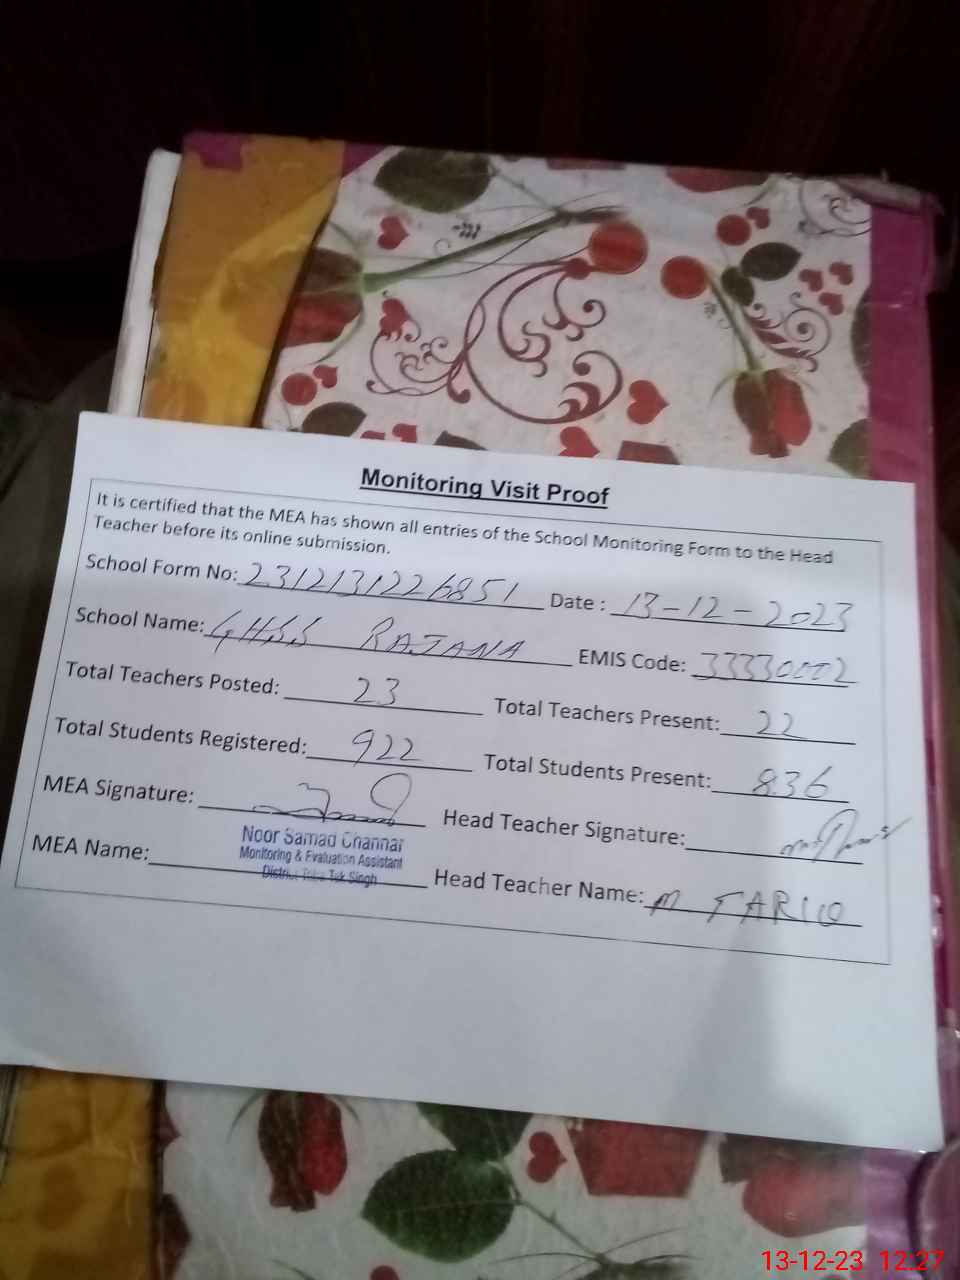 Monitoring Visit Proof
It is certified that the MEA has shown all entries of the School Monitoring Form to the Head
Teacher before its online submission.
School Form No: 2312131226851 Date : 13-12-2023
School Name: GHSS RAJANA EMIS Code: 33330002
Total Teachers Posted: 23 Total Teachers Present: 22
Total Students Registered: 922 Total Students Present: 836
MEA Signature: Head Teacher Signature:
Noor Samad Channar
Monitoring & Evaluation Assistant
District Toba Tek Singh
MEA Name: Head Teacher Name: M TARIQ
13-12-23 12:27